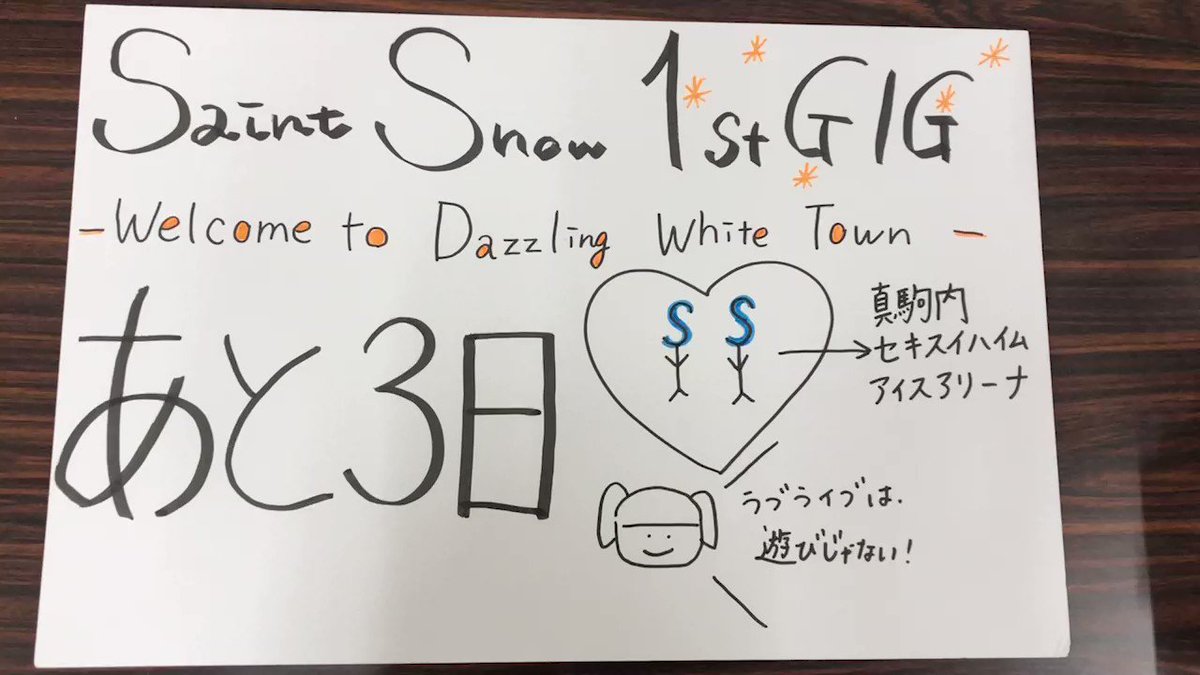 Saint Snow 1st GIG
-Welcome to Dazzling White Town-
あと3日
S S
真駒内
セキスイハイム
アイスアリーナ
ラブライブは、
遊びじゃない!